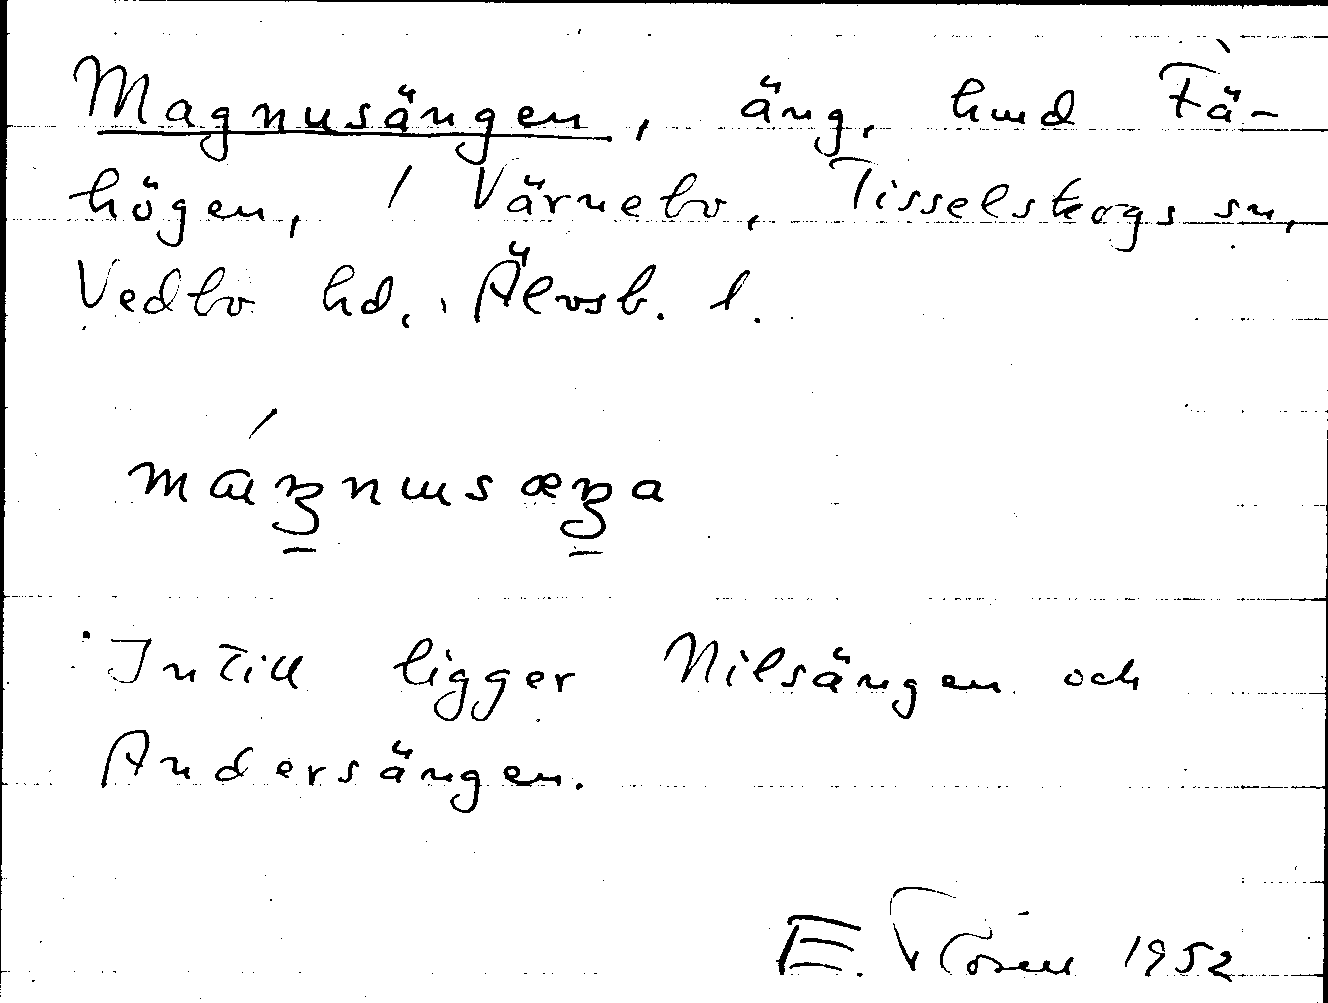 Magnusängen, äng, hmd Fä-
högen, / Värnebo, Tisselskogs sn,
Vedbo hd, Älvsb. l.
Intill ligger Nilsängen och
Andersängen.
E. 1952